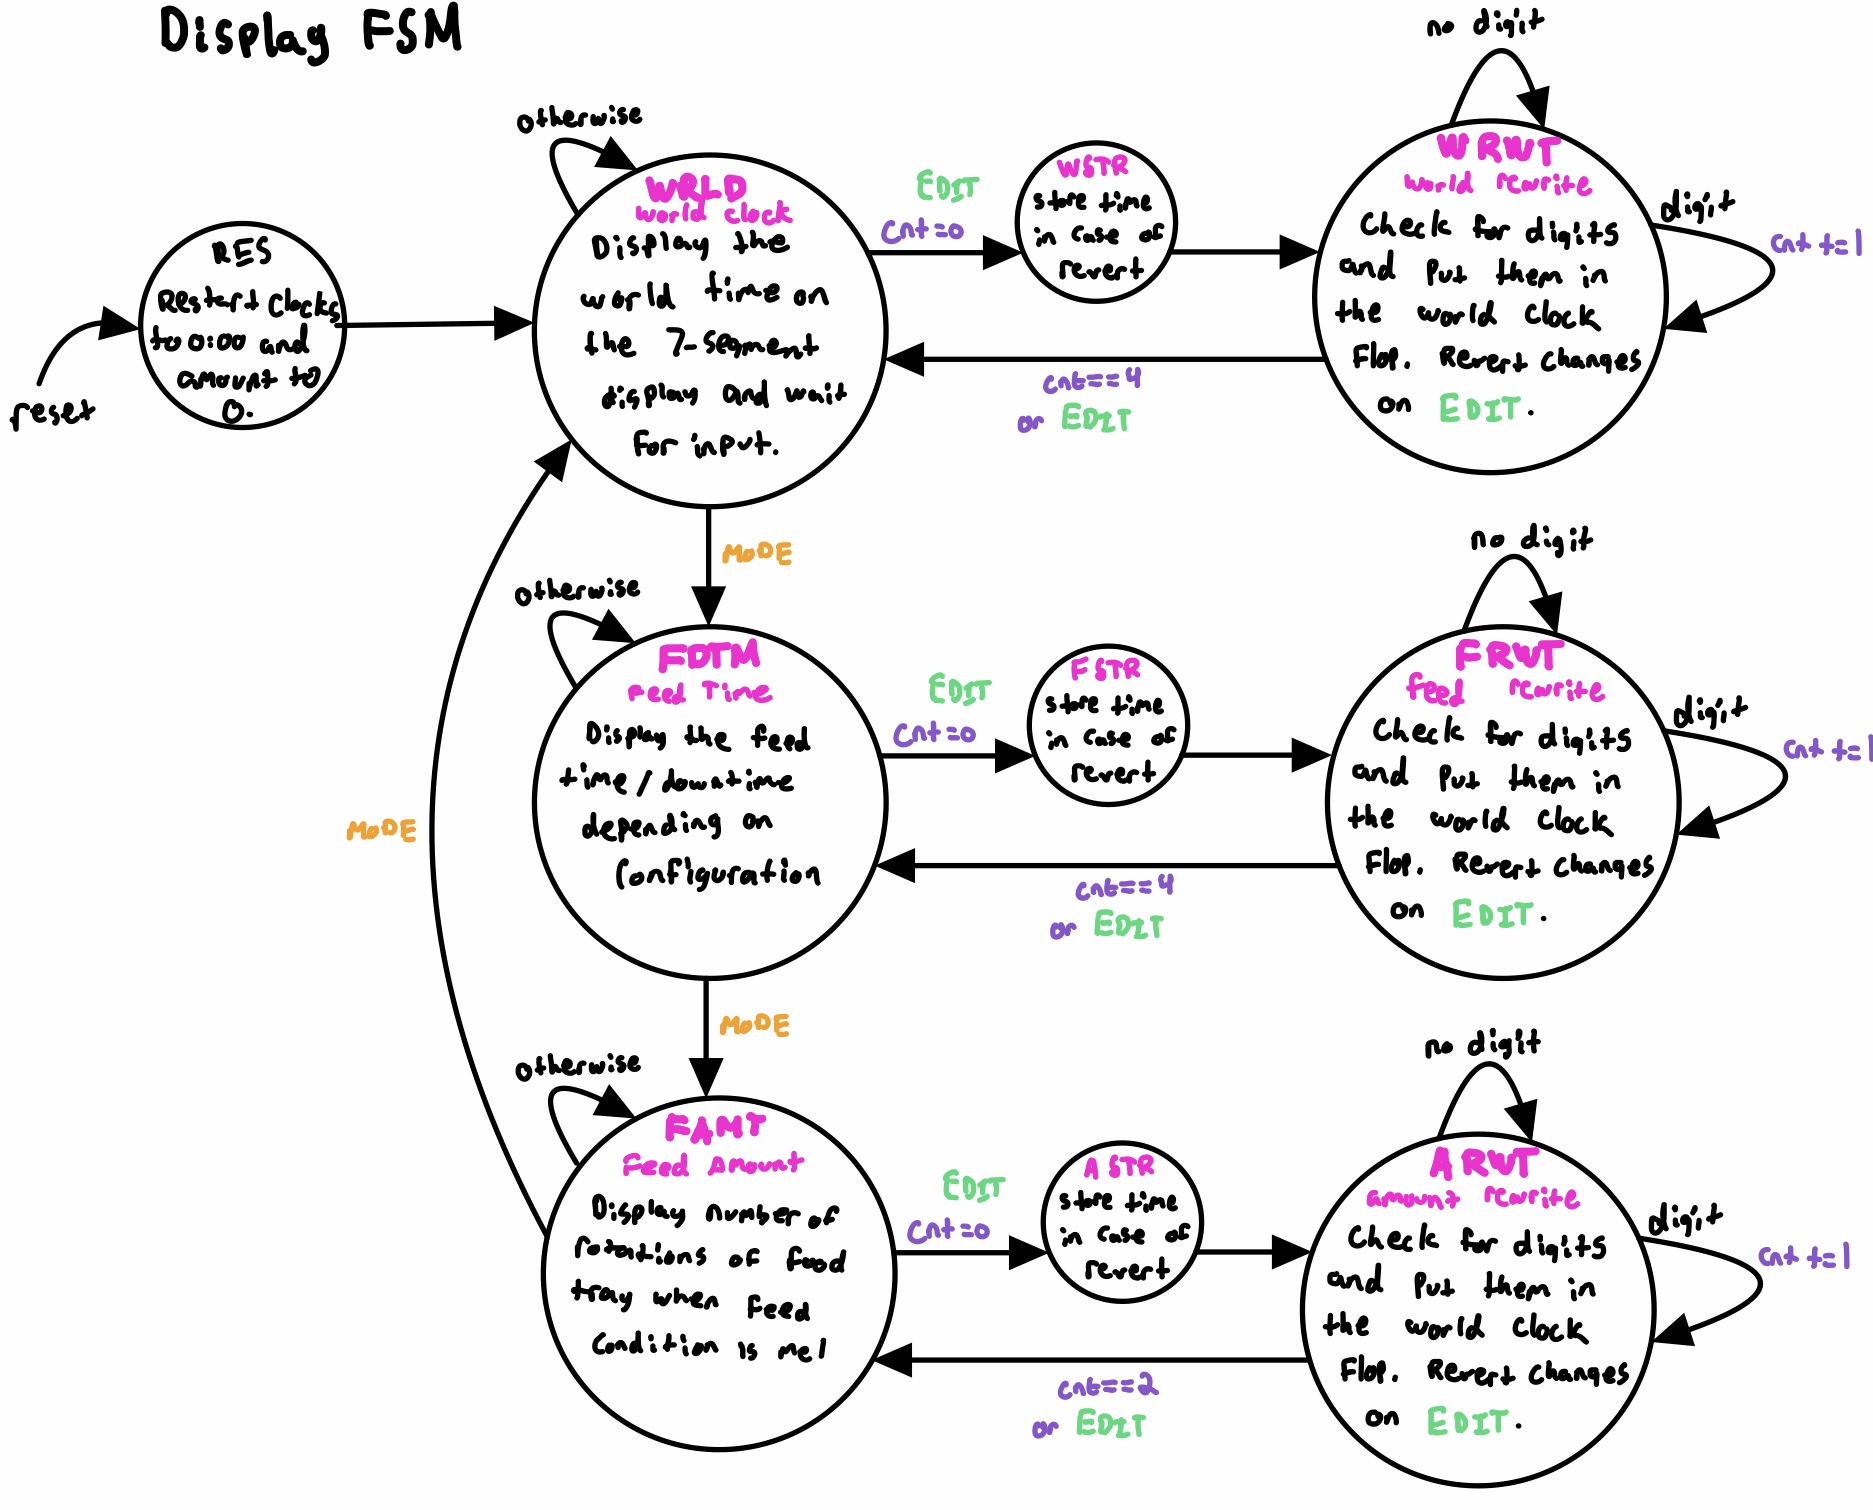 Display FSM
no digit
otherwise
WRLD
world clock
Display the
world time on
the 7-segment
display and wait
for input.
EDIT
cnt=0
WSTR
store time
in case of
revert
WRWT
world rewrite
Check for digits
and put them in
the world clock
Flop. Revert changes
on EDIT.
digit
cnt+=1
RES
Restart clocks
to 0:00 and
amount to
0.
reset
cnt==4
or EDIT
MODE
no digit
otherwise
FDTM
Feed Time
Display the feed
time/downtime
depending on
configuration
EDIT
cnt=0
FSTR
store time
in case of
revert
FRWT
feed rewrite
Check for digits
and put them in
the world clock
Flop. Revert changes
on EDIT.
digit
cnt+=1
MODE
cnt==4
or EDIT
MODE
no digit
otherwise
FAMT
Feed Amount
Display number of
rotations of food
tray when feed
condition is met
EDIT
cnt=0
ASTR
store time
in case of
revert
ARWT
amount rewrite
Check for digits
and put them in
the world clock
Flop. Revert changes
on EDIT.
digit
cnt+=1
cnt==2
or EDIT